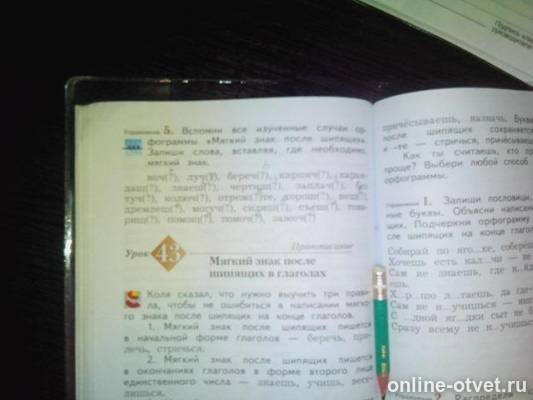 Подпись
руководителя
Упражнение 5. Вспомни все изученные случаи ор-
фограммы «Мягкий знак после шипящих».
Запиши слова, вставляя, где необходимо,
мягкий знак.
ноч(?), луч(?), береч(?), кирпич(?), каран-
даш(?), знаеш(?), чертиш(?), заплач(?), без
туч(?), колюч(?), отреж(?)те, хорош(?), вещ(?),
дремлеш(?), могуч(?), сидиш(?), съеш(?), това-
рищ(?), помощ(?), помоч(?), залеч(?)
Урок 43
Правописание
Мягкий знак после
шипящих в глаголах
Коля сказал, что нужно выучить три прави-
ла, чтобы не ошибиться в написании мягко-
го знака после шипящих на конце глаголов.
1. Мягкий знак после шипящих пишется
в начальной форме глаголов — беречь, пе-
чь, стричься.
2. Мягкий знак после шипящих пишется
в окончаниях глаголов в форме второго лица
единственного числа — знаешь, учишь, весе-
лишься.
причёсываешь, назначь. Буква
после шипящих сохраняется
и -те — стричься, причёсываешься
Как ты считаешь, кто
проще? Выбери любой способ
орфограммы.
Упражнение 1. Запиши пословицы,
ные буквы. Объясни написание
щих. Подчеркни орфограмму
сле шипящих на конце глагол
Собирай по яго..ке, соберёш
Хочешь есть кал..чи — не
Сам не знаешь, где
ешь.
Х..р..шо д..лаешь, да где-
Сам не н..учишься —
С ..дной яг..дки сыт не б
Сразу всему не н..учишься
Упражнение 2. Распредели
online-otvet.ru